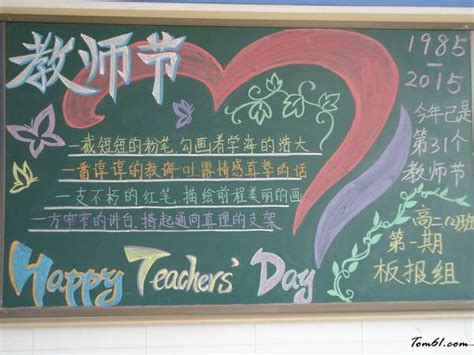 教师节
一截短短的粉笔,勾画着学海的浩大
一番谆谆的教诲,吐露情感真挚的话
一支不朽的红笔,描绘前程美丽的画
一方窄窄的讲台,搭起通向真理的支架
Happy Teachers' Day
1985
—
2015
今年已是
第31个
教师节
高二 班
第一期
板报组
Tom61.com